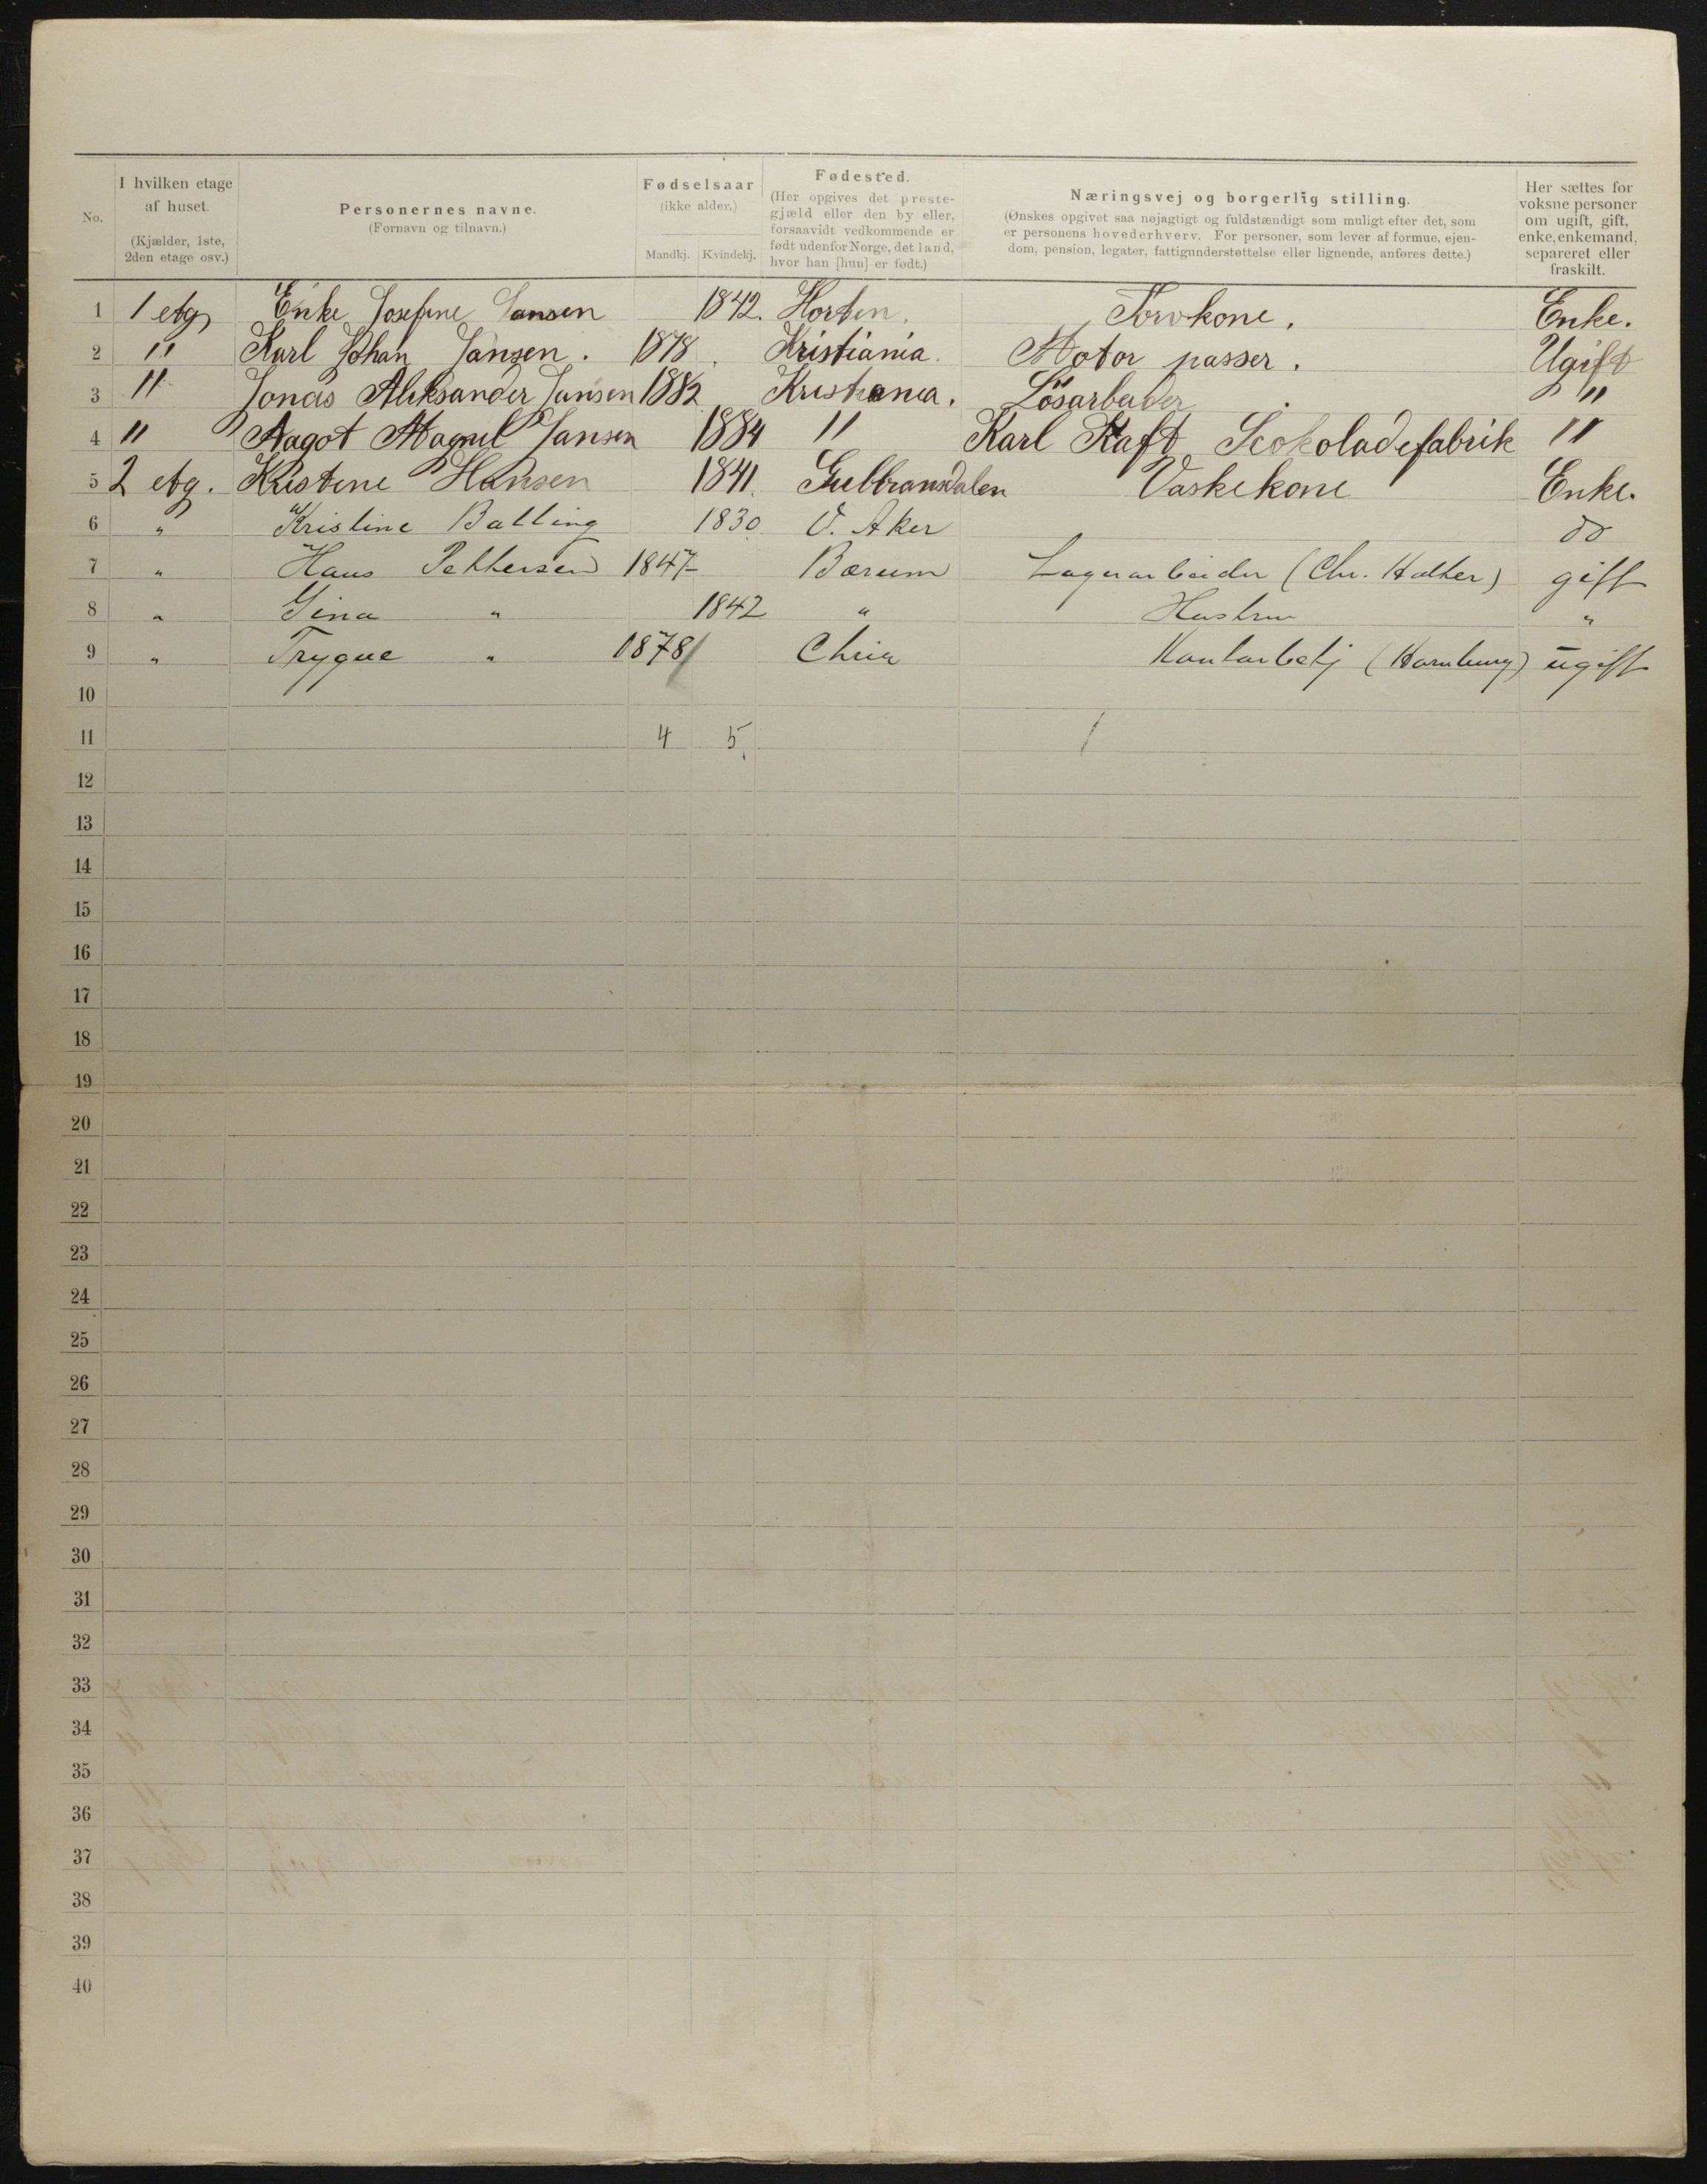 No. | I hvilken etage af huset. (Kjælder, 1ste, 2den etage osv.) | Personernes navne. (Fornavn og tilnavn.) | Fødselsaar (ikke alder.) Mandkj. Kvindekj. | Fødested. (Her opgives det prestegjæld eller den by eller, forsaavidt vedkommende er født udenfor Norge, det land, hvor han [hun] er født.) | Næringsvej og borgerlig stilling. (Ønskes opgivet saa nøjagtigt og fuldstændigt som muligt efter det, som er personens hovederhverv. For personer, som lever af formue, ejendom, pension, legater, fattigunderstøttelse eller lignende, anføres dette.) | Her sættes for voksne personer om ugift, gift, enke, enkemand, separeret eller fraskilt.
1 1 etg Enke Josefine Jansen 1842. Horten. Torvkone. Enke.
2 " Karl Johan Jansen. 1878. Kristiania. Motor passer. Ugift
3 " Jonas Aleksander Jansen 1882 Kristiania. Løsarbeider "
4 " Aagot Magnel Jansen 1884 " Karl Kaft Scokoladefabrik "
5 2 etg. Kristine Hansen 1841. Gulbransdalen Vaskekone Enke.
6 " Kristine Balling 1830 V. Aker do
7 " Hans Pettersen 1847 Bærum Lagerarbeider (Chr. Holther) gift
8 " Gina " 1842 " Hustru "
9 " Trygve " 1878 Chria (Hamburg) ugift
10
11 4 5
12
13
14
15
16
17
18
19
20
21
22
23
24
25
26
27
28
29
30
31
32
33
34
35
36
37
38
39
40